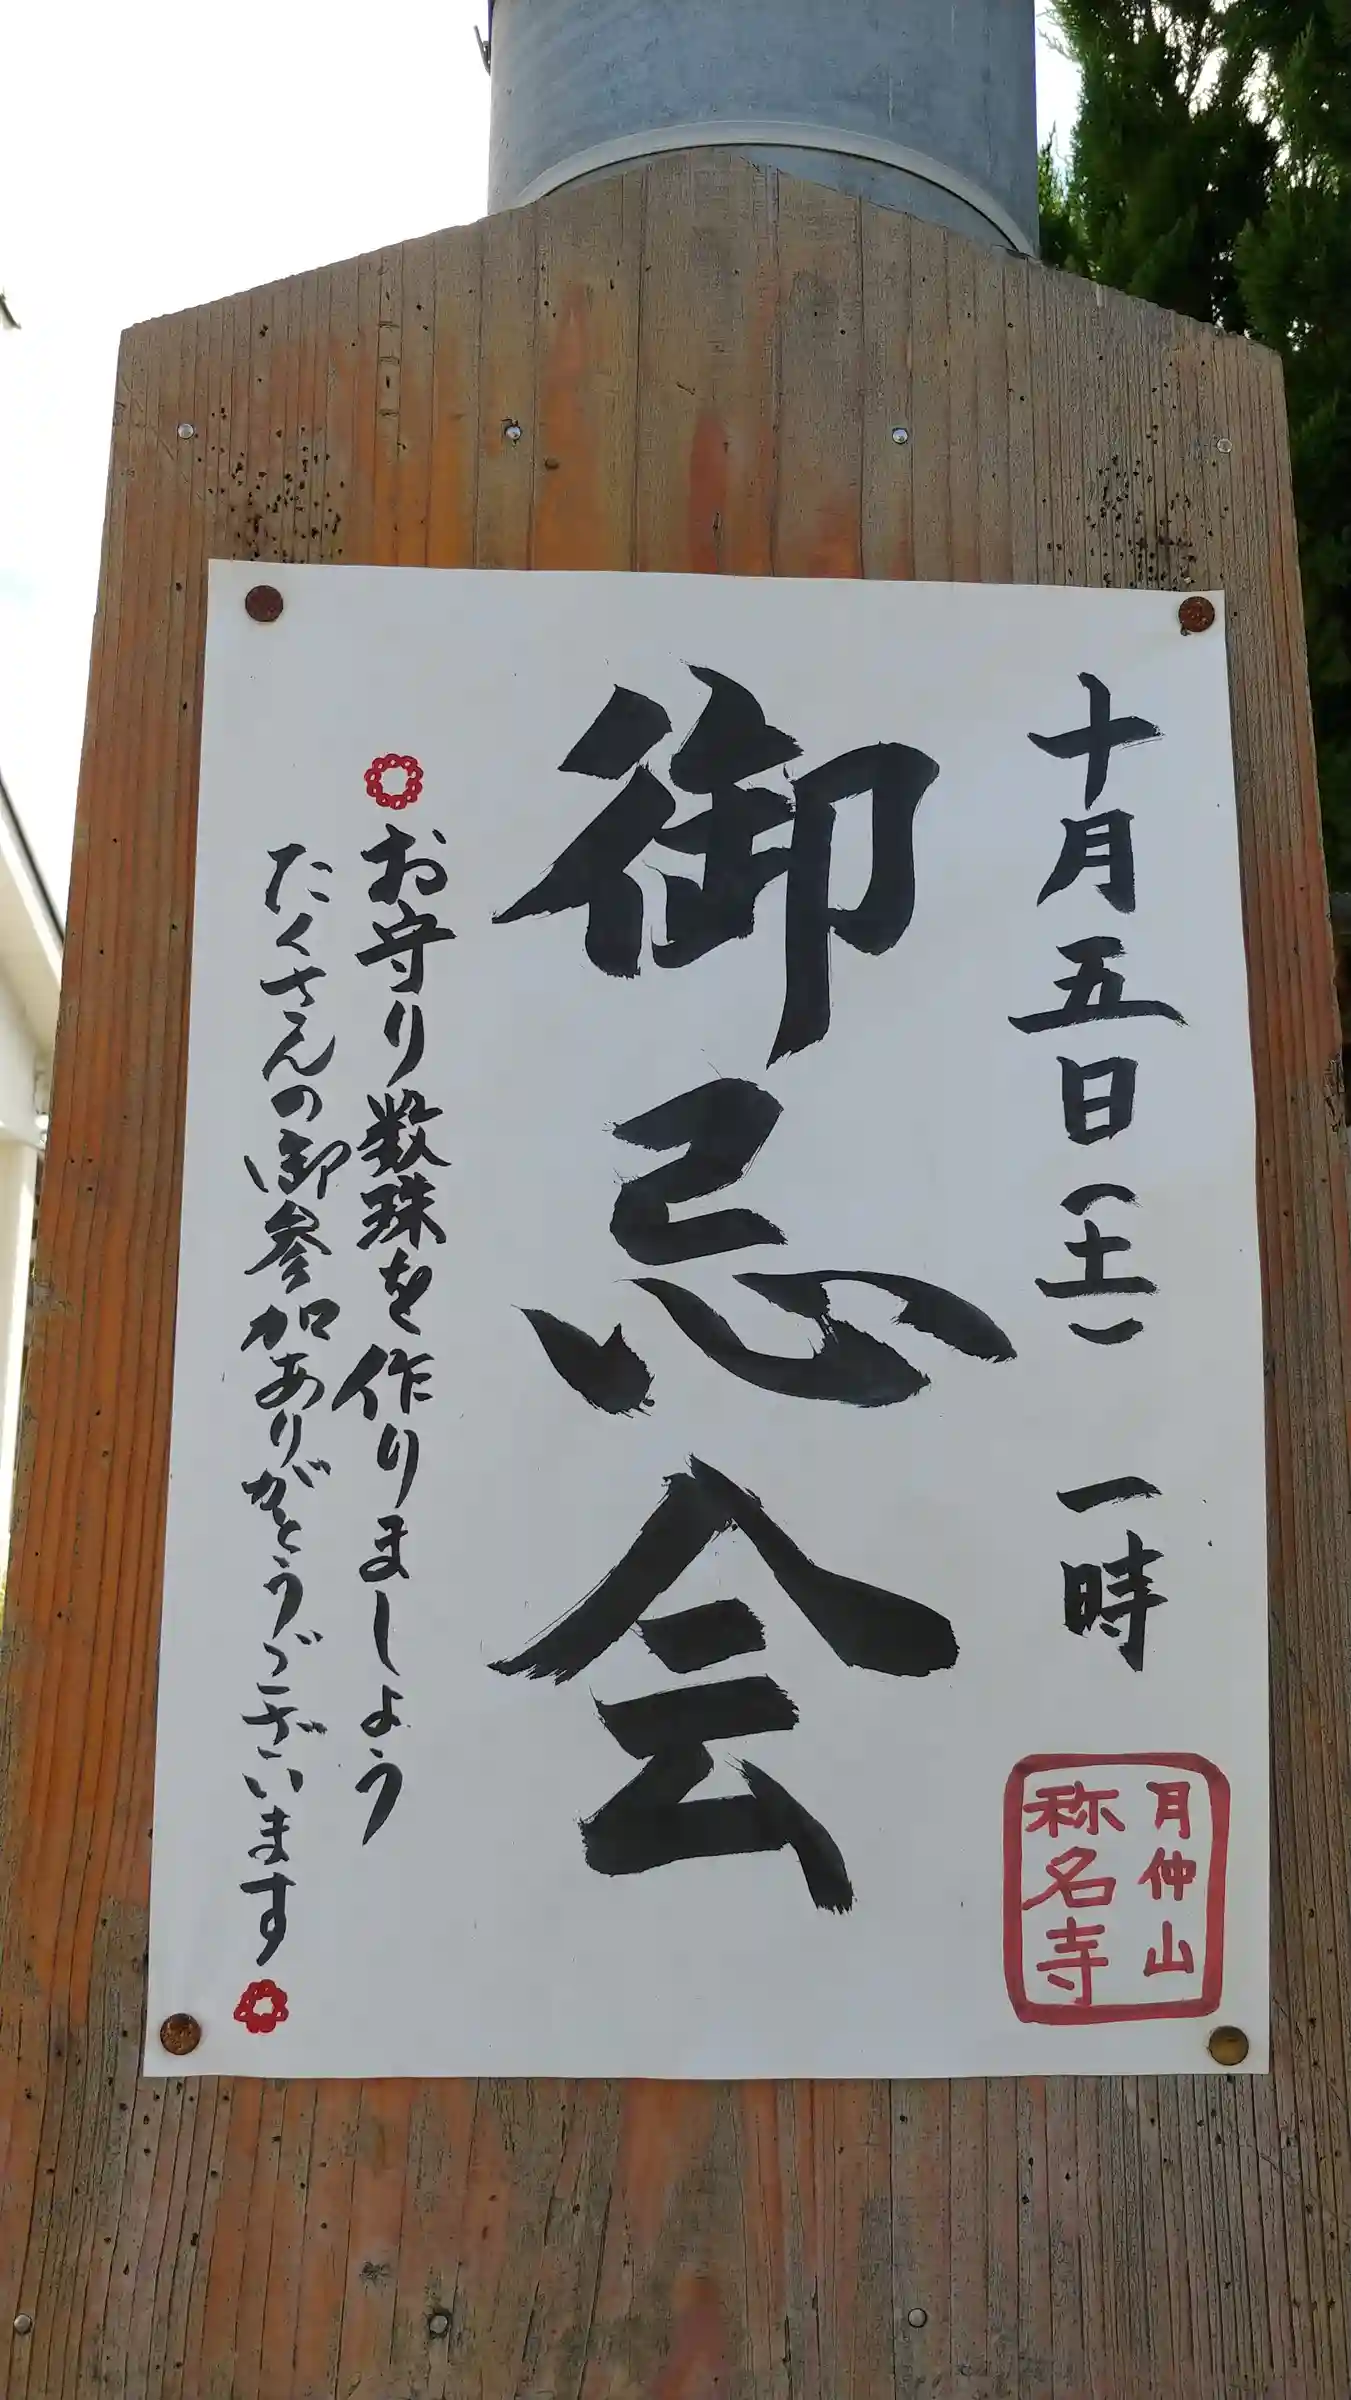 十月五日(土) 一時
御忌会
お守り数珠を作りましょう
たくさんの御参加ありがとうございます
月仲山
称名寺